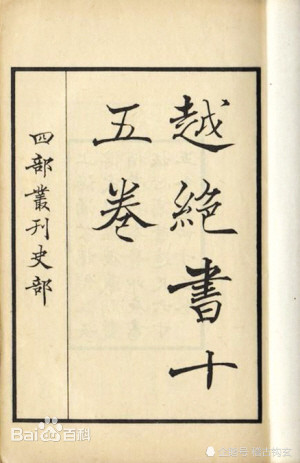 越絕書十
五卷
四部叢刊史部
Bai百科